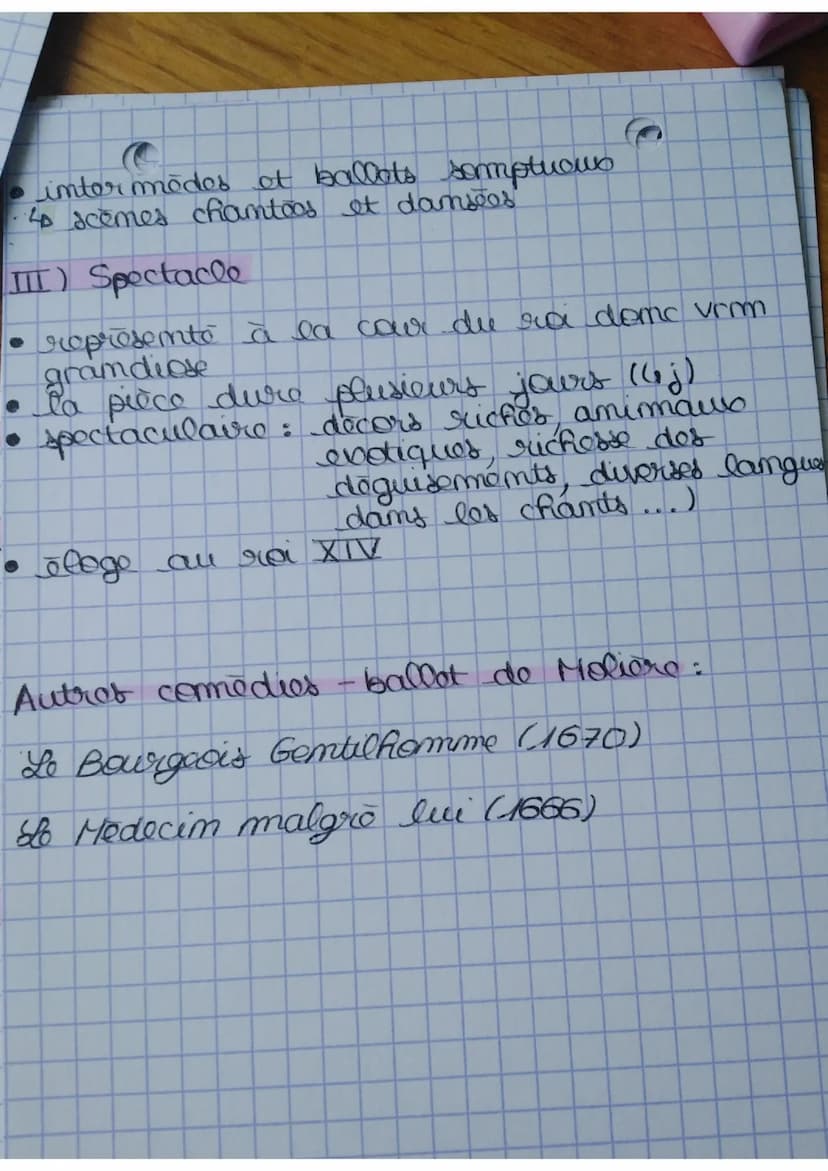 • intermèdes et ballets somptueux
↳ scènes chantées et dansées
III) Spectacle
• représenté à la cour du roi donc vrm
grandiose
• la pièce dure plusieurs jours (4j)
• spectaculaire : décors riches, animaux
exotiques, richesse des
déguisements, diverses langues
dans les chants ...)
• éloge au roi XIV
Autres comédies-ballet de Molière :
Le Bourgeois Gentilhomme (1670)
Le Médecin malgré lui (1666)